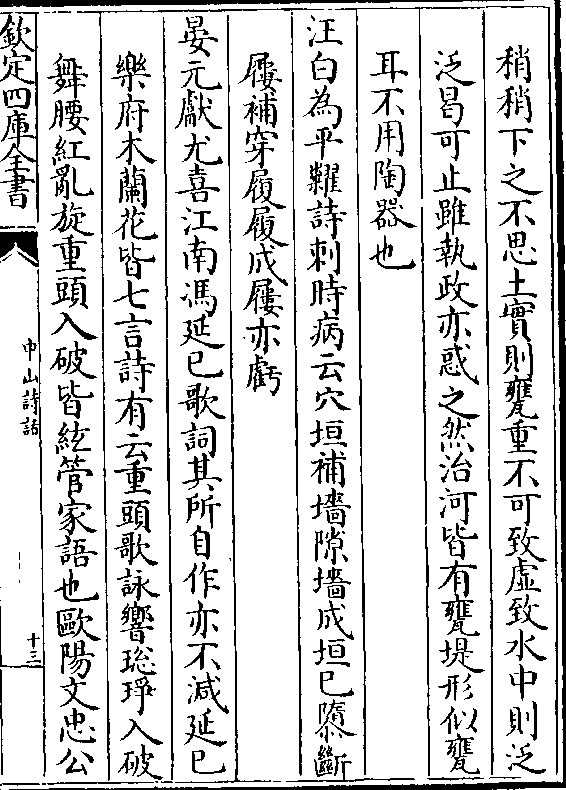 稍稍下之不思土實則甕重不可致虛致水中則泛
泛曷可止雖執政亦惑之然治河皆有甕堤形似甕
耳不用陶器也
汪白為平糶詩刺時病云穴垣補墻隙墻成垣已隳斷
屦補穿履履成屦亦虧
晏元獻尤喜江南馮延巳歌詞其所自作亦不減延巳
樂府木蘭花皆七言詩有云重頭歌詠響璁琤入破
舞腰紅亂旋重頭入破皆絃管家語也歐陽文忠公
欽定四庫全書
中山詩話
十三